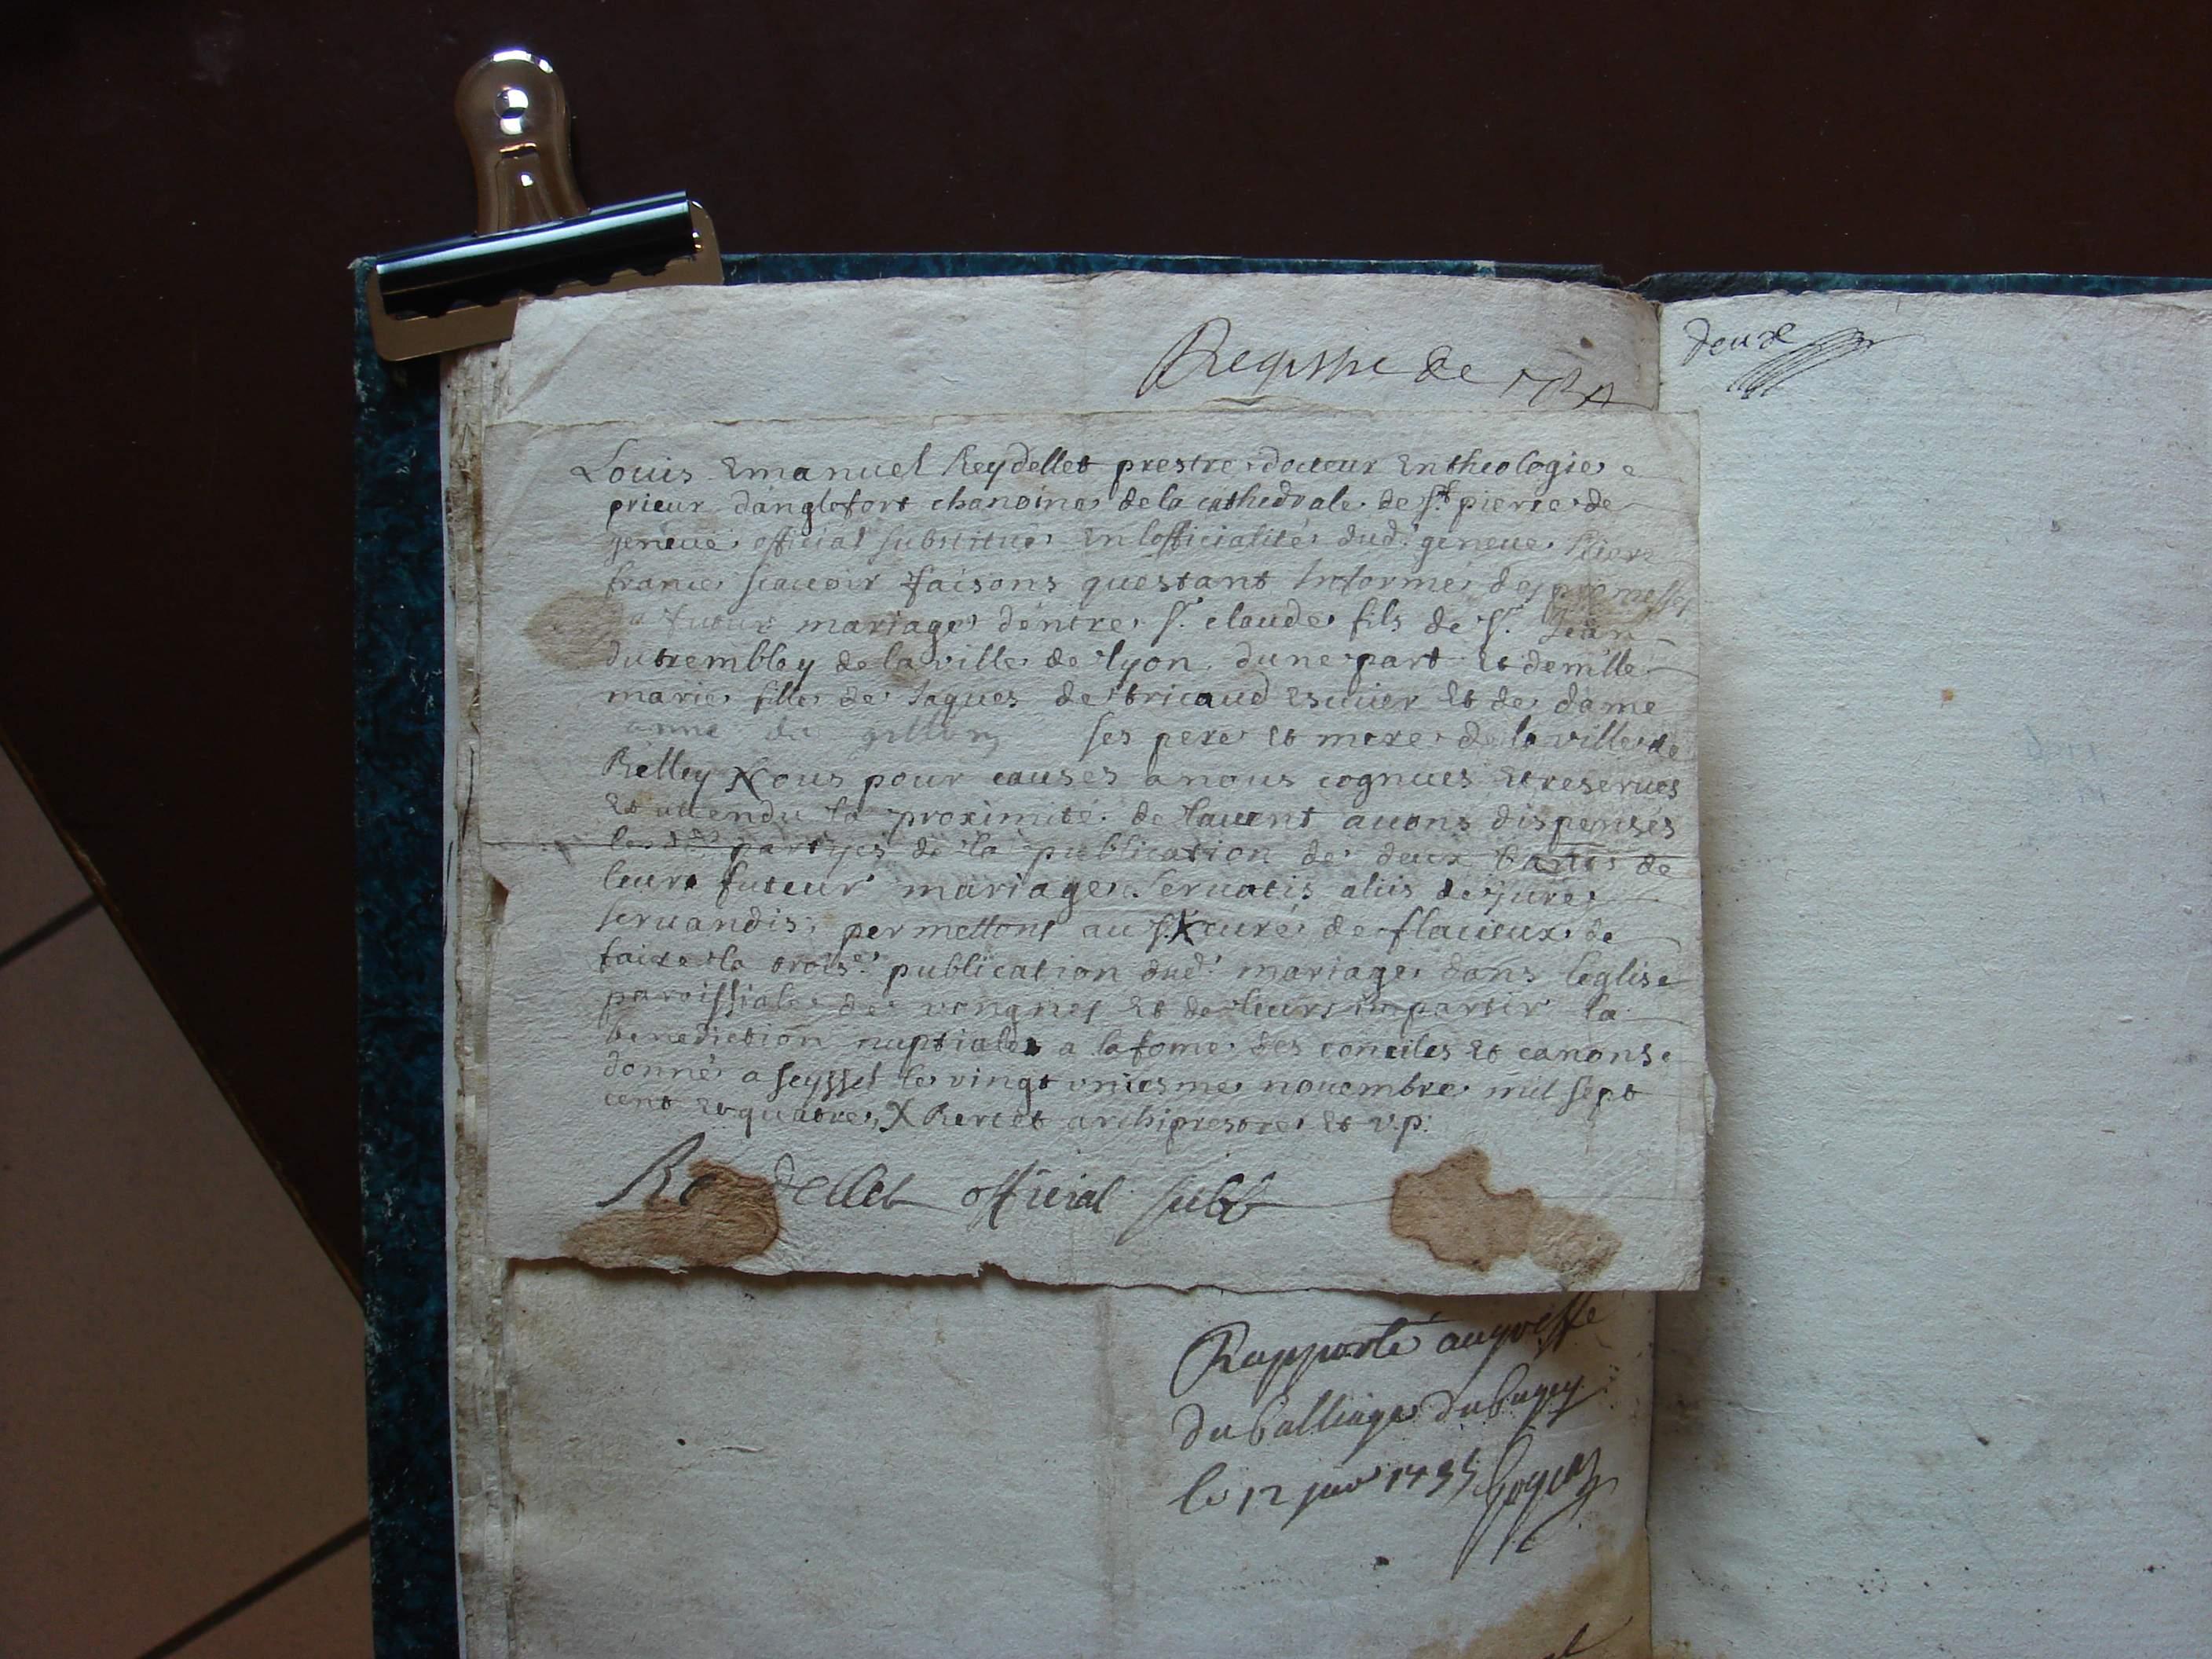 Registre de
deux
Louis Emanuel Reydellet prestre docteur en theologie
prieur danglefort chanoine de la cathedrale de st pierre de
geneue official substitué en lofficialité dud. geneue riere
france scauoir faisons questant informé des promesses
futeur mariage dentre sr. claude fils de sr. Jean
dutrembley de la ville de lyon dune part et demlle
marie fille de Jaques de tricaud escuier et de dame
anne du ses pere et mere de la ville de
Belley Nous pour causes a nous cognues et reserues
et attendu la proximité de lauent auons dispensés
les dtes partyes de la publication de deux bans de
leurs futeur mariage seruatis aliis de jure
seruandis, permettons au sr curé de flacieux de
faire la trois.e publication dud. mariage dans leglise
paroissiale de vongnes et de leurs impartir la
benediction nuptiale a la forme des conciles et canons
donné a seyssel le vingt vniesme nouembre mil sept
cent et quatre, X Bertet archiprestre et v.p.
Reydellet official subt
Rapporté au greffe
du balliage du bugey
le 12